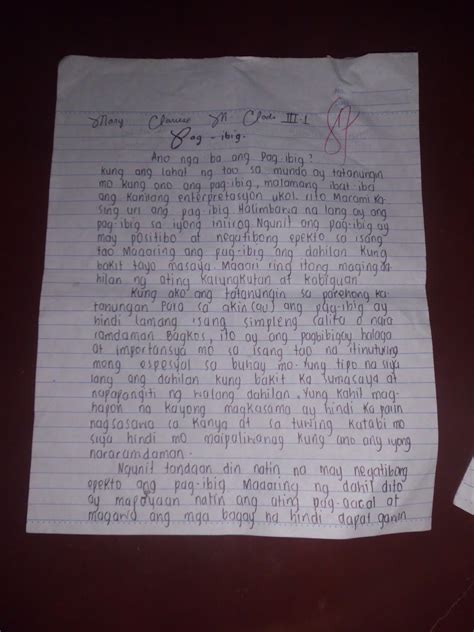 Mary Clarisse M. III-1
89
Pag-ibig.
Ano nga ba ang Pag-ibig?
Kung ang lahat ng tao sa mundo ay tatanungin
mo kung ano ang pag-ibig, malamang ibat iba
ang kanyang enterpretasyon ukol rito Marami ka
sing uri ang pag-ibig. Halimbawa na lang ay ang
pag-ibig sa iyong iniirog Ngunit ang pag-ibig ay
may positibo at negatibong epekto sa isang
tao Maaaring ang pag-ibig ang dahilan kung
bakit tayo masaya. Maaari ring itong maging da
hilan ng ating karungkutan at kabiguan
Kung ako ang tatanungin sa parehong ka-
tanungan Para sa akin (au) ang pag-ibig ay
hindi lamang isang simpleng salita o nara
ramdaman Bagkos, ito ay ang pagbibigay halaga
at importansya mo sa isang tao na itinuturing
mong espesyal sa buhay mo. Yung tipo na siya
lang ang dahilan kung bakit ka sumasaya at
napapangiti ng walang dahilan. Yung kahit mag-
hapon na kayong magkasama ay hindi ka parin
nagsasawa sa kanya at sa tuwing katabi mo
siya hindi mo maipaliwanag kung ano ang iyong
nararamdaman.
Ngunit tandaan din natin na may negatibong
epekto ang pag-ibig Maaaring ng dahil dito
ay mapabayaan natin ang ating pag-aaral at
magawa ang mga bagay na hindi dapat gawin